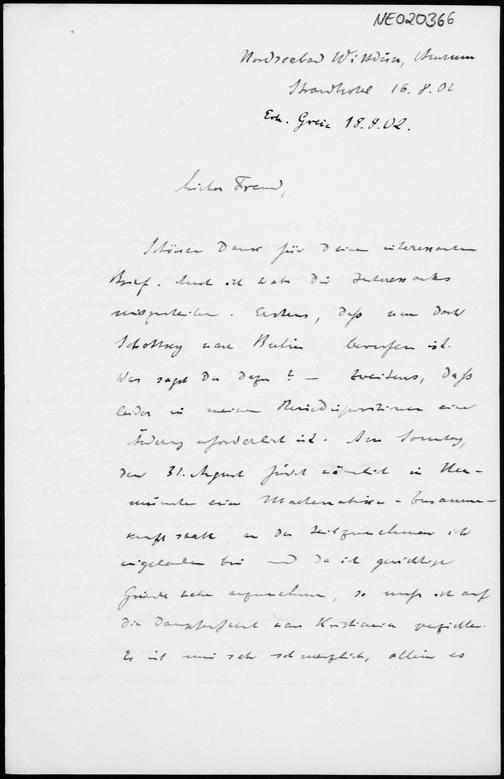 NE020366
Nordseebad Wittdün, Amrum
Strandhotel 16.8.02
Erh. Greiz 18.8.02.
Lieber Freund,
Schönen Dank für Deinen interessanten
Brief. Auch ich habe Dir Interessantes
mitzuteilen. Erstens, daß nun doch
Schottky nach Berlin berufen ist.
Was sagst Du dazu? — Zweitens, daß
leider in meinen Reisedispositionen eine
Änderung erforderlich ist. Am Sonntag,
den 31. August findet nämlich in Neu-
münster eine Mathematiker-Zusammen-
kunft statt, an der teilzunehmen ich
eingeladen bin und da ich gewichtige
Gründe habe anzunehmen, so muß ich auf
die Dampferfahrt nach Kristiania verzichten.
Es ist mir sehr schmerzlich, allein es